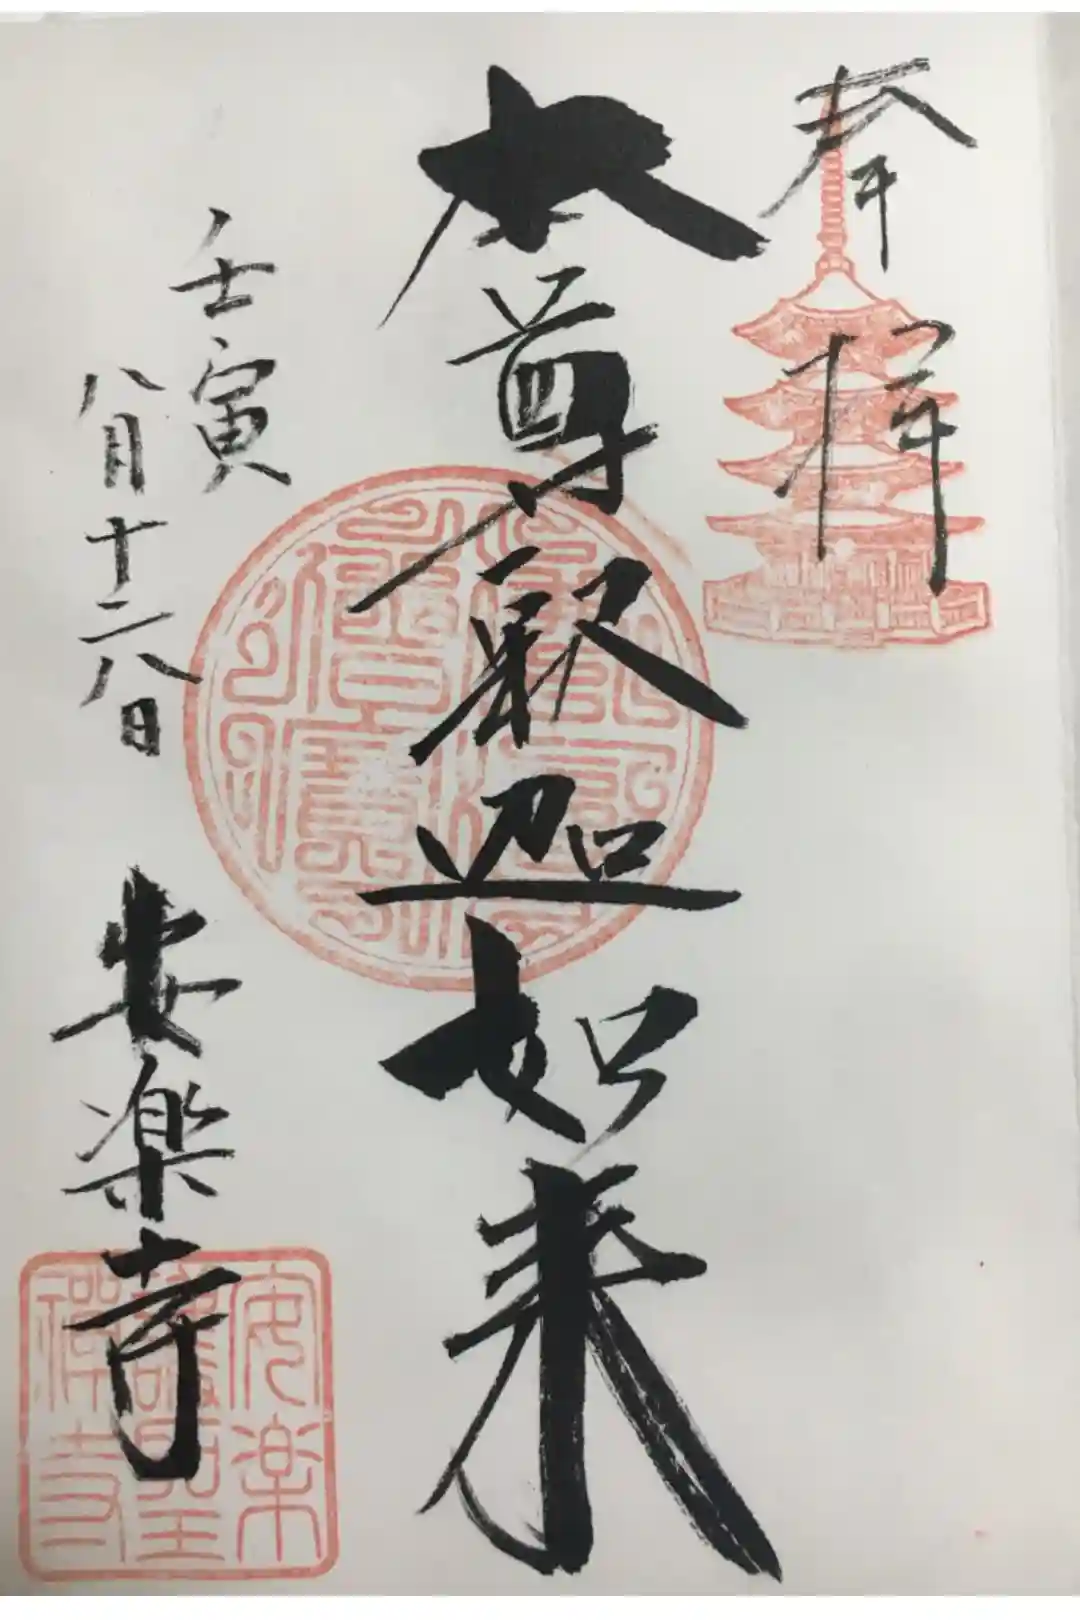 奉拝
本尊釈迦如来
壬寅
八月十二八日
安楽寺
安楽
護聖
禅寺